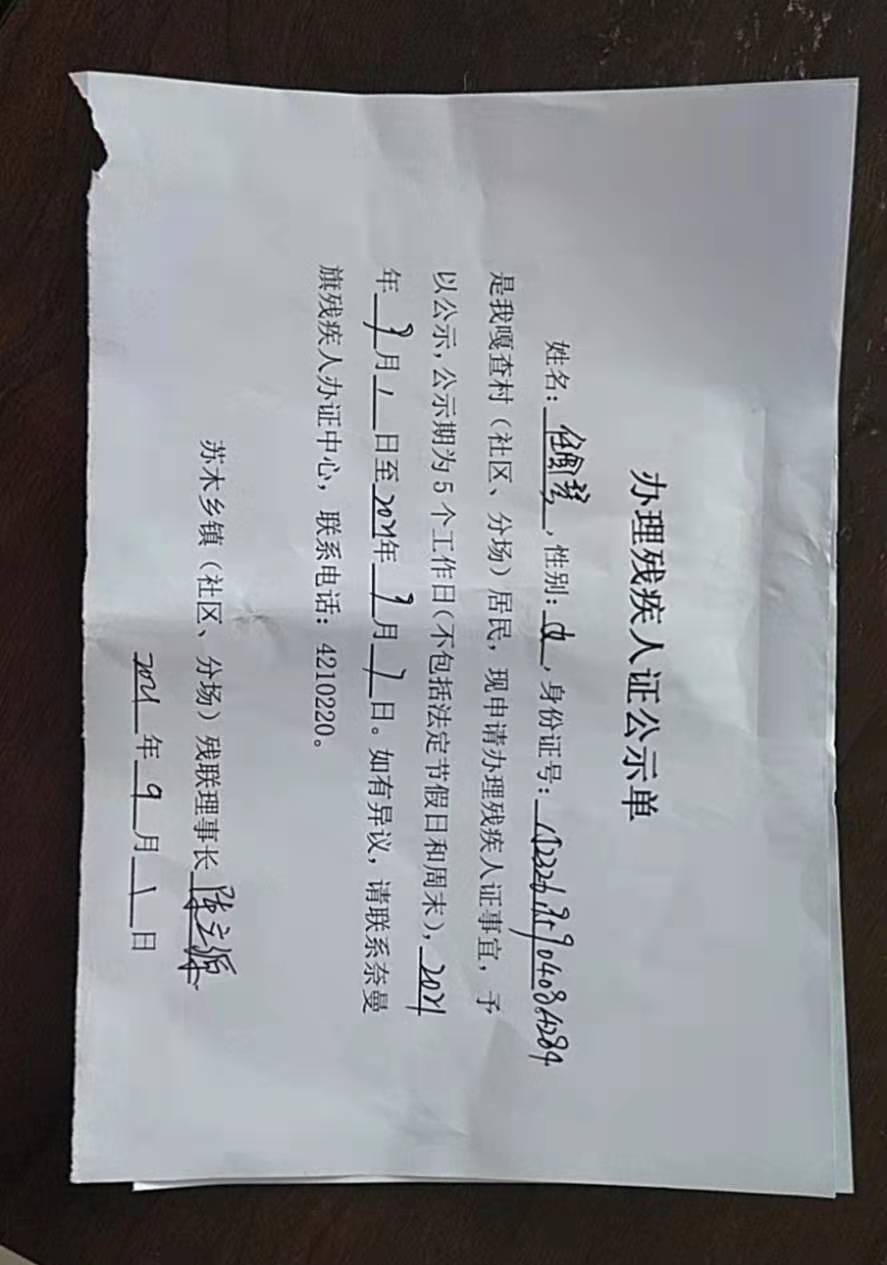 办理残疾人证公示单
姓名：，性别：女，身份证号：
是我嘎查村（社区、分场）居民，现申请办理残疾人证事宜，予
以公示，公示期为5个工作日（不包括法定节假日和周末），2021
年9月1日至2021年9月7日。如有异议，请联系奈曼
旗残疾人办证中心，联系电话：4210220。
苏木乡镇（社区、分场）残联理事长
2021年9月1日